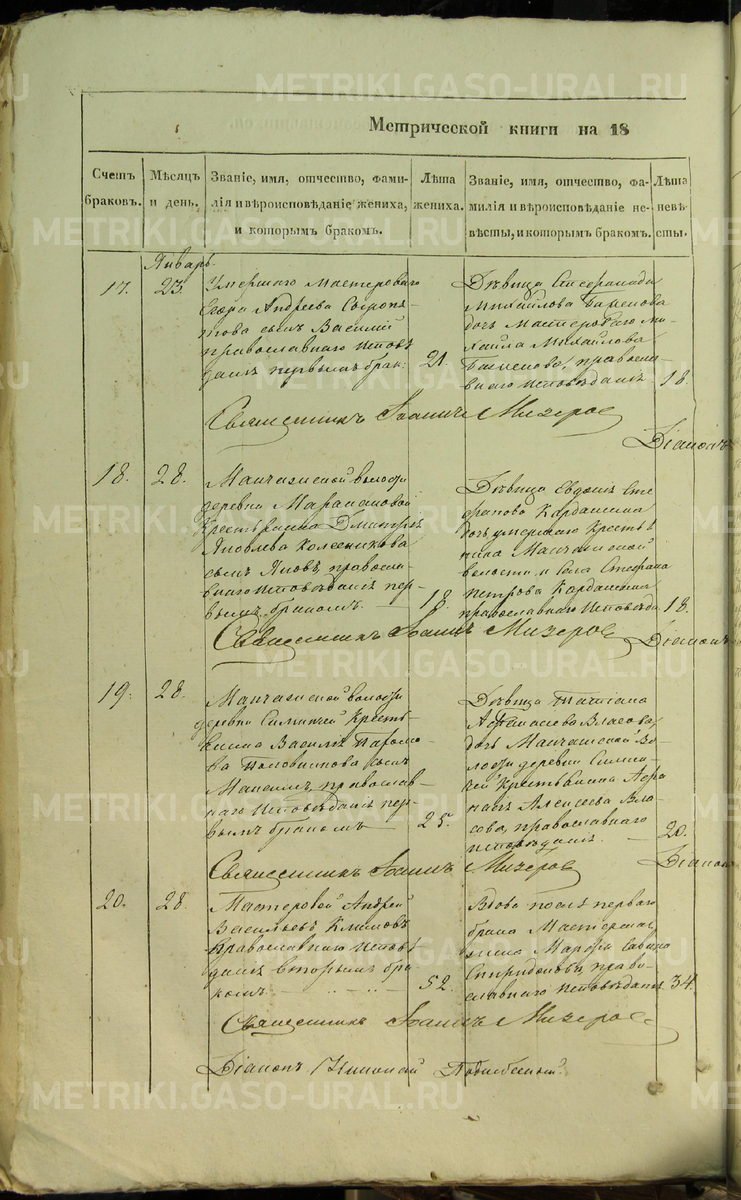 Метрической книги на 18
Счетъ браковъ.
Мѣсяцъ и день.
Званіе, имя, отчество, фами-
лія и вѣроисповѣданіе жениха,
и которымъ бракомъ.
Лѣта
жениха.
Званіе, имя, отчество, фа-
милія и вѣроисповѣданіе не-
вѣсты, и которымъ бракомъ.
Лѣта
невѣ-
сты.
Январь.
17. 23
Умершаго Мастероваго
Егора Андреева
сынъ Василий
православнаго исповѣ
данія первымъ брак:
21.
Дѣвица
Михайлова
дочь Мастероваго Ми-
хаила Михайлова
правосла-
внаго исповѣданія
18.
Священникъ Іоаннъ Мизеровъ
Діаконъ
18. 28.
Манчажской волости
деревни
Крестьянина Дмитрія
Яковлева Колесникова
сынъ Яковъ, правосла-
внаго исповѣданія пер-
вымъ бракомъ.
18.
Дѣвица Евдокія Сте
фанова
дочь умершаго Крестья
нина Манчажской
волости и села Стефана
Петрова
православнаго исповѣда
18.
Священникъ Іоаннъ Мизеровъ
Діаконъ
19. 28.
Манчажской волости
деревни Кресть-
янина Василія
сынъ
православ-
наго исповѣданія пер-
вымъ бракомъ
25.
Дѣвица Татіана
Афанасьева Власова,
дочь Манчажской Во-
лости деревни
Крестьянина Афа
насія Алексеева Вла-
сова, православнаго
исповѣданія.
20.
Священникъ Іоаннъ Мизеровъ
Діаконъ
20. 28.
Мастеровой Андрей
Васильевъ Климовъ
православнаго исповѣ
данія вторымъ бра
комъ
52.
Вдова послѣ перваго
брака Мастерская
жена Марфа Савина
право-
славнаго исповѣданія
34.
Священникъ Іоаннъ Мизеровъ
Діаконъ Николай
METRIKI.GASO-URAL.RU